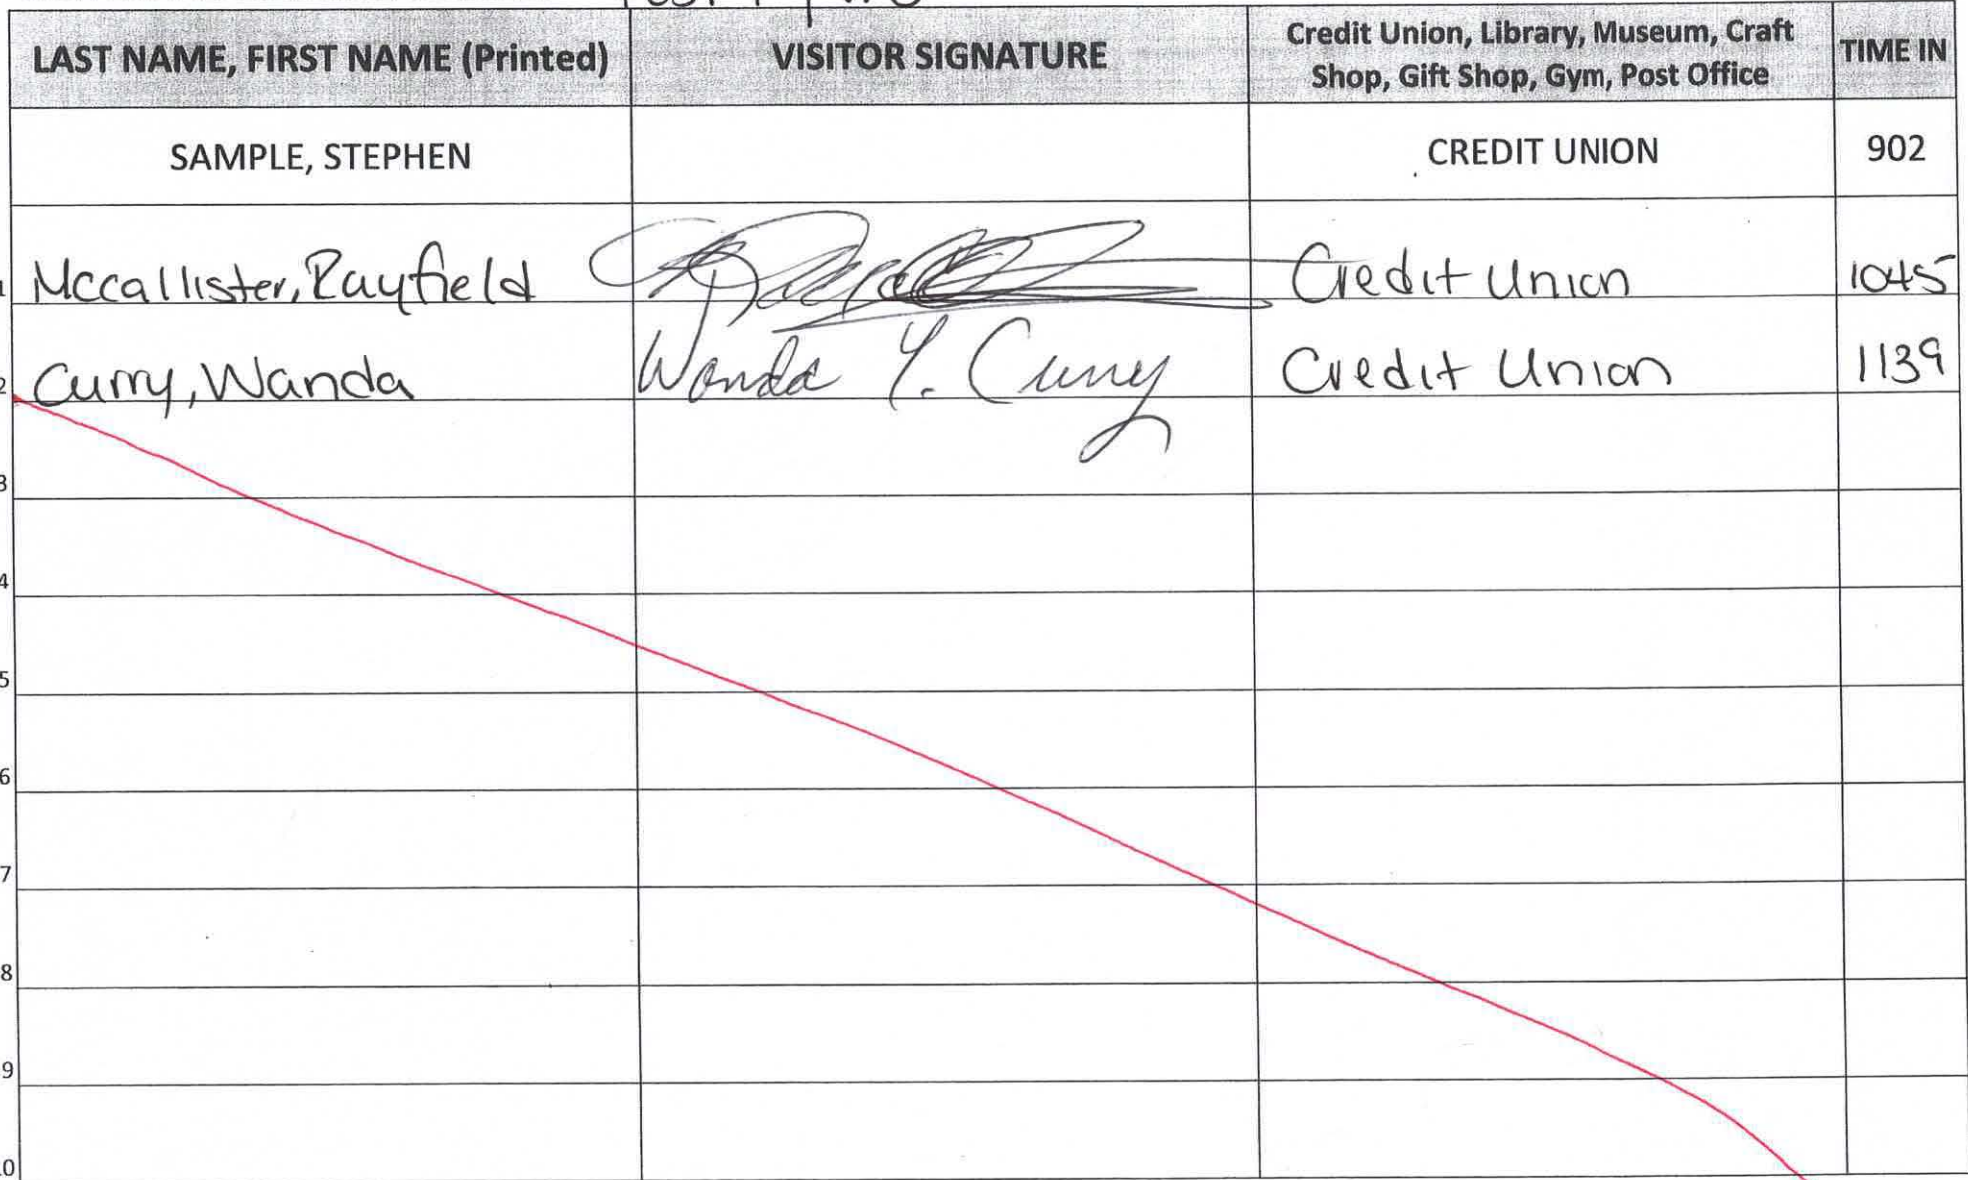 LAST NAME, FIRST NAME (Printed) VISITOR SIGNATURE Credit Union, Library, Museum, Craft Shop, Gift Shop, Gym, Post Office TIME IN
SAMPLE, STEPHEN CREDIT UNION 902
1 Mccallister, Rayfield Credit Union 1045
2 Curry, Wanda Wanda Y. Curry Credit Union 1139
3
4
5
6
7
8
9